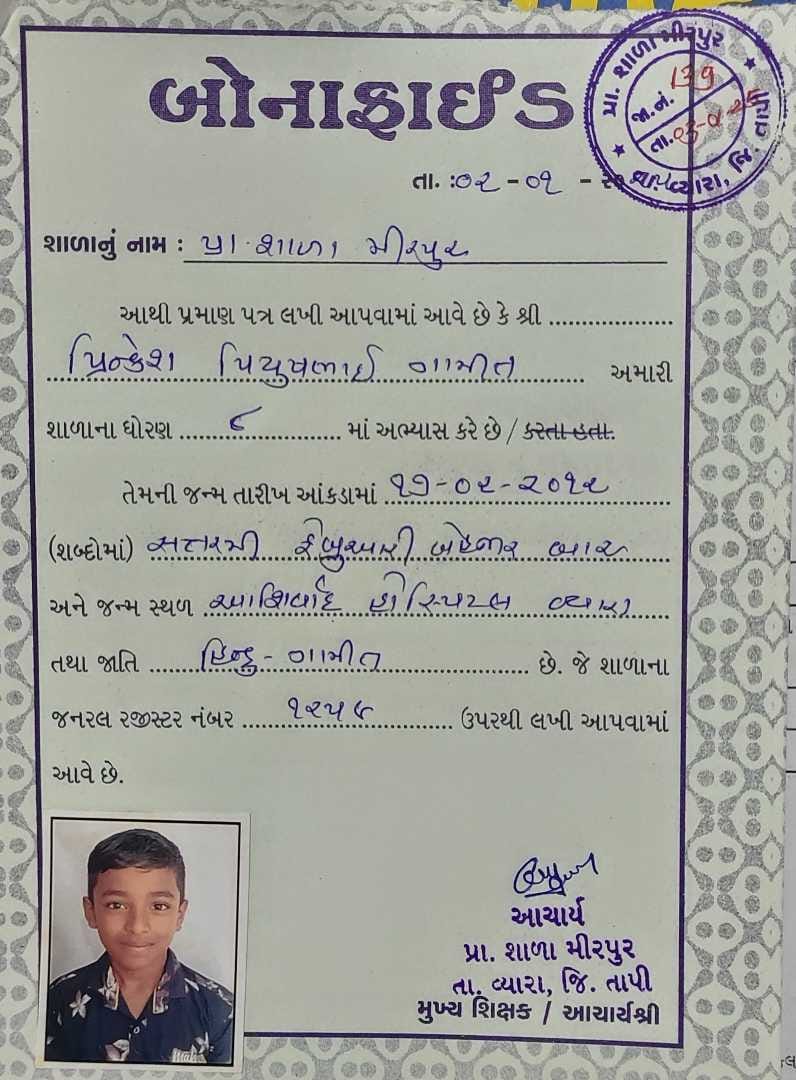 બોનાફાઈડ
પ્રા. શાળા મીરપુર
139
જા.નં.
તા.
તા. વ્યારા, જિ. તાપી
તા. :૦૨ - ૦૧ -
શાળાનું નામ : પ્રા. શાળા મીરપુર
આથી પ્રમાણ પત્ર લખી આપવામાં આવે છે કે શ્રી ....................
પ્રિન્કેશ પિયુષભાઈ ગામીત અમારી
શાળાના ધોરણ ........ ૮ ........ માં અભ્યાસ કરે છે / કરતા હતા.
તેમની જન્મ તારીખ આંકડામાં ૧૭-૦૨-૨૦૧૨
(શબ્દોમાં) સત્તરમી ફેબ્રુઆરી બેહજાર બાર
અને જન્મ સ્થળ આશિર્વાદ હોસ્પિટલ વ્યારા
તથા જાતિ ........ હિન્દુ - ગામીત ........ છે. જે શાળાના
જનરલ રજીસ્ટર નંબર ........ ૧૨૫૯ ........ ઉપરથી લખી આપવામાં
આવે છે.
આચાર્ય
પ્રા. શાળા મીરપુર
તા. વ્યારા, જિ. તાપી
મુખ્ય શિક્ષક / આચાર્યશ્રી